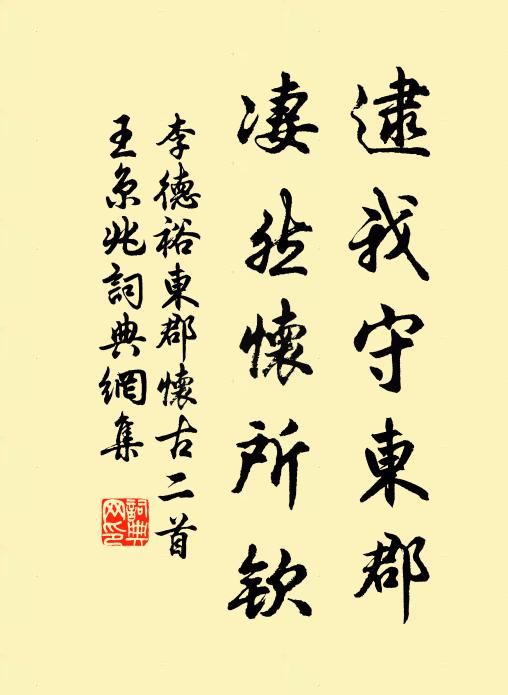 逮我守東郡
凄然懷所欽
李德裕東郡懷古二首
王京兆詞典網集
詞典
网印